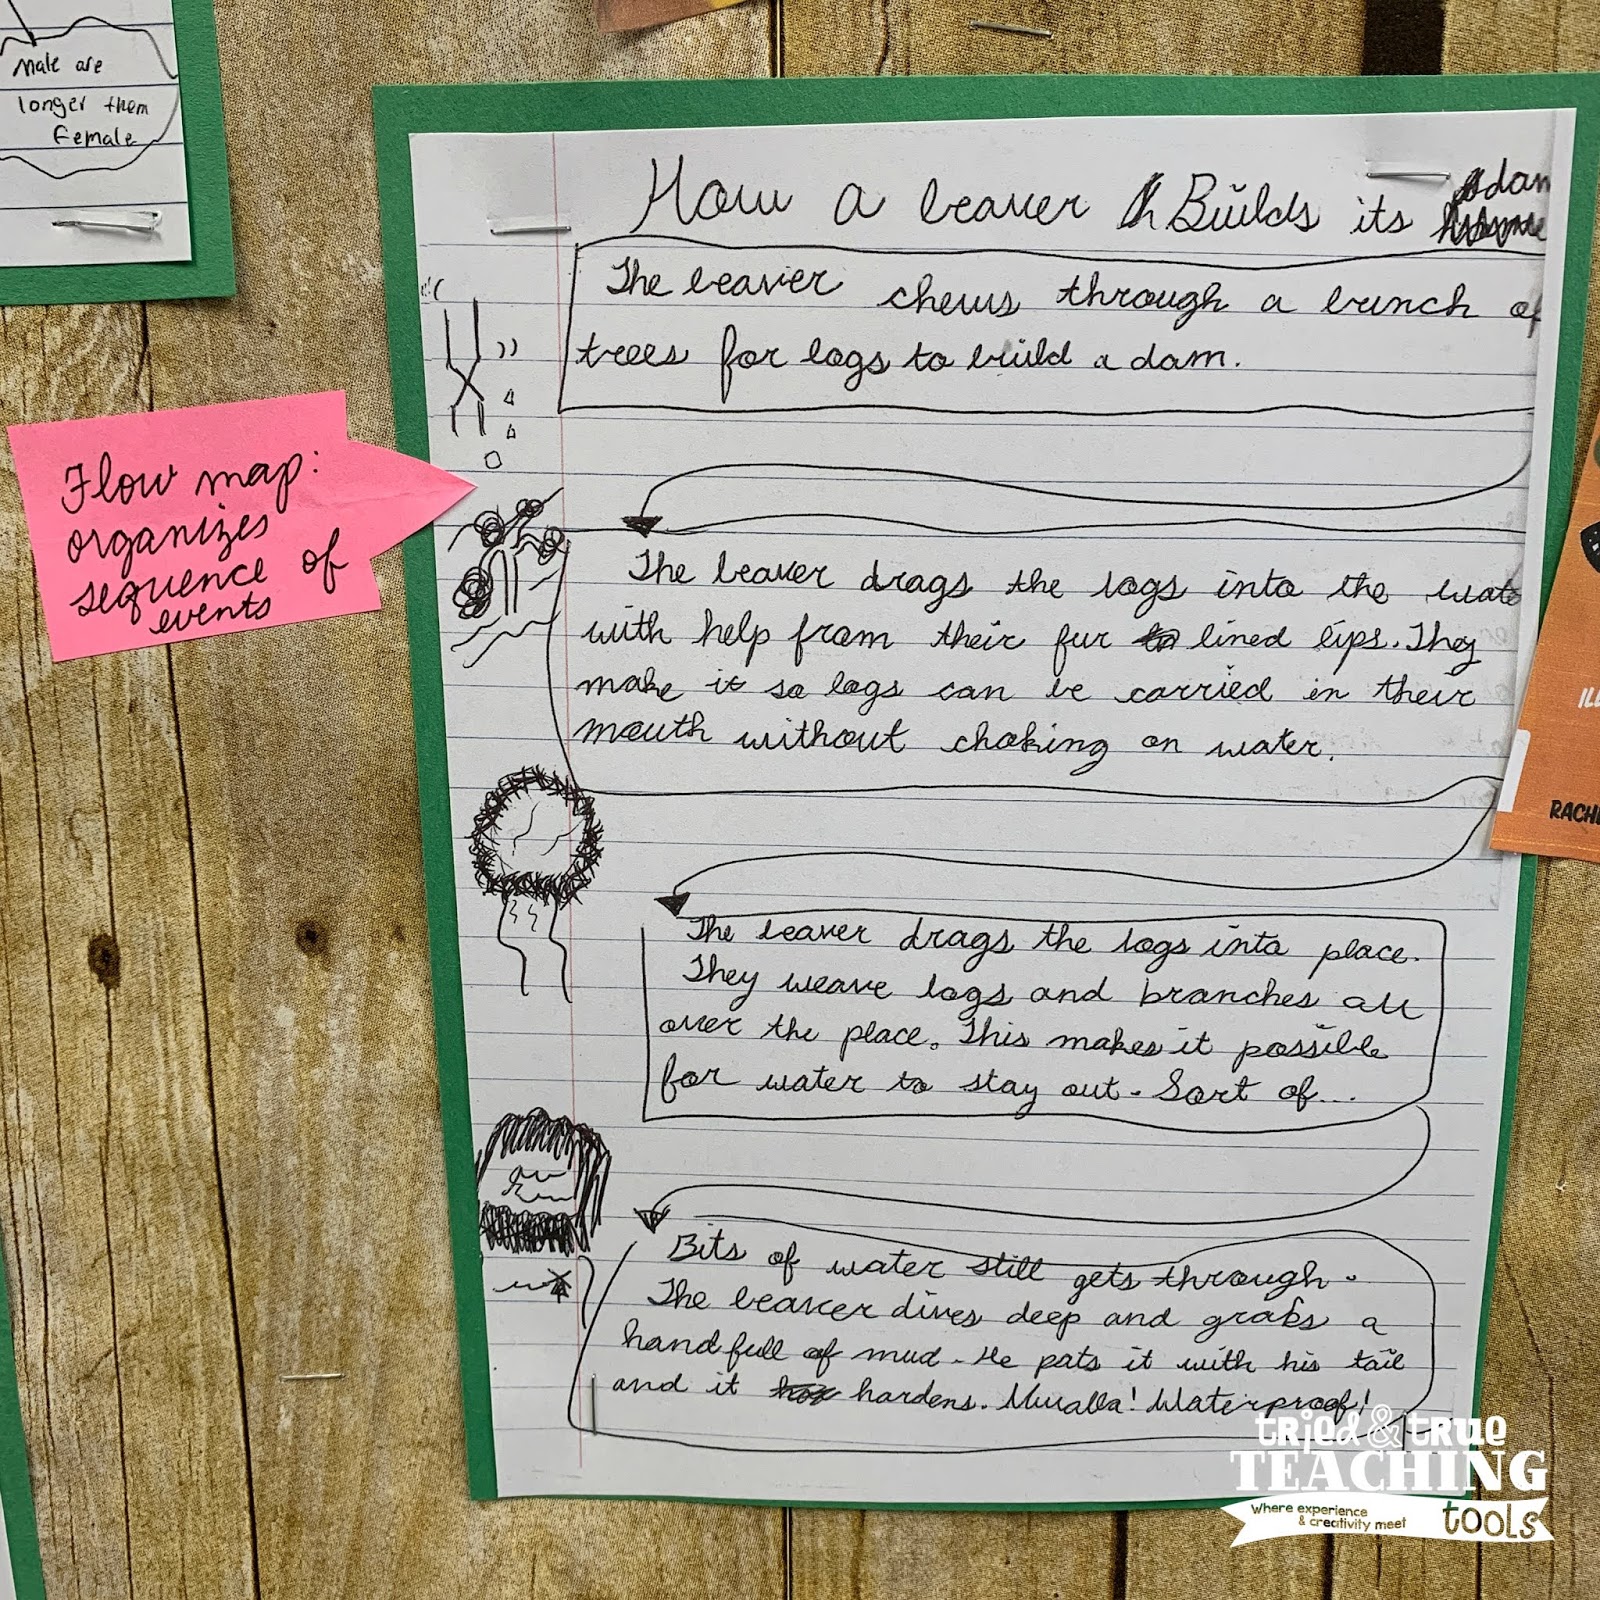 Male are
longer them
Female
How a beaver Builds its dam
The beaver chews through a bunch of
trees for logs to build a dam.
Flow map:
organizes
sequence of
events
The beaver drags the logs into the wate
with help from their fur lined lips. They
make it so logs can be carried in their
mouth without choking on water.
The beaver drags the logs into place.
They weave logs and branches all
over the place. This makes it possible
for water to stay out. Sort of...
Bits of water still gets through.
The beaver dives deep and grabs a
handfull of mud. He pats it with his tail
and it hardens. Waterproof!
ILL
RACHE
tried & true
TEACHING
tools
where experience
& creativity meet